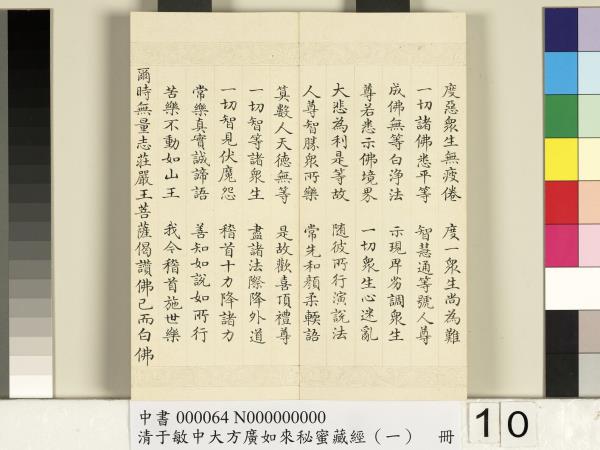 度惡衆生無疲倦　度一衆生尚為難
一切諸佛悉平等　智慧通等號人尊
成佛無等白淨法　示現卑劣調衆生
尊若悉示佛境界　一切衆生心迷亂
大悲為利是等故　随彼所行演説法
人尊智勝衆所樂　常先和顔柔輭語
筭數人天德無等　是故歡喜頂禮尊
一切智等諸衆生　盡諸法際降外道
一切智見伏魔怨　稽首十力降諸力
常樂真實誠諦語　善知如說如所行
苦樂不動如山王　我今稽首施世樂
爾時無量志莊嚴王菩薩偈讚佛已而白佛
中書 000064 N000000000
清于敏中大方廣如來秘蜜藏經（一）　冊
10